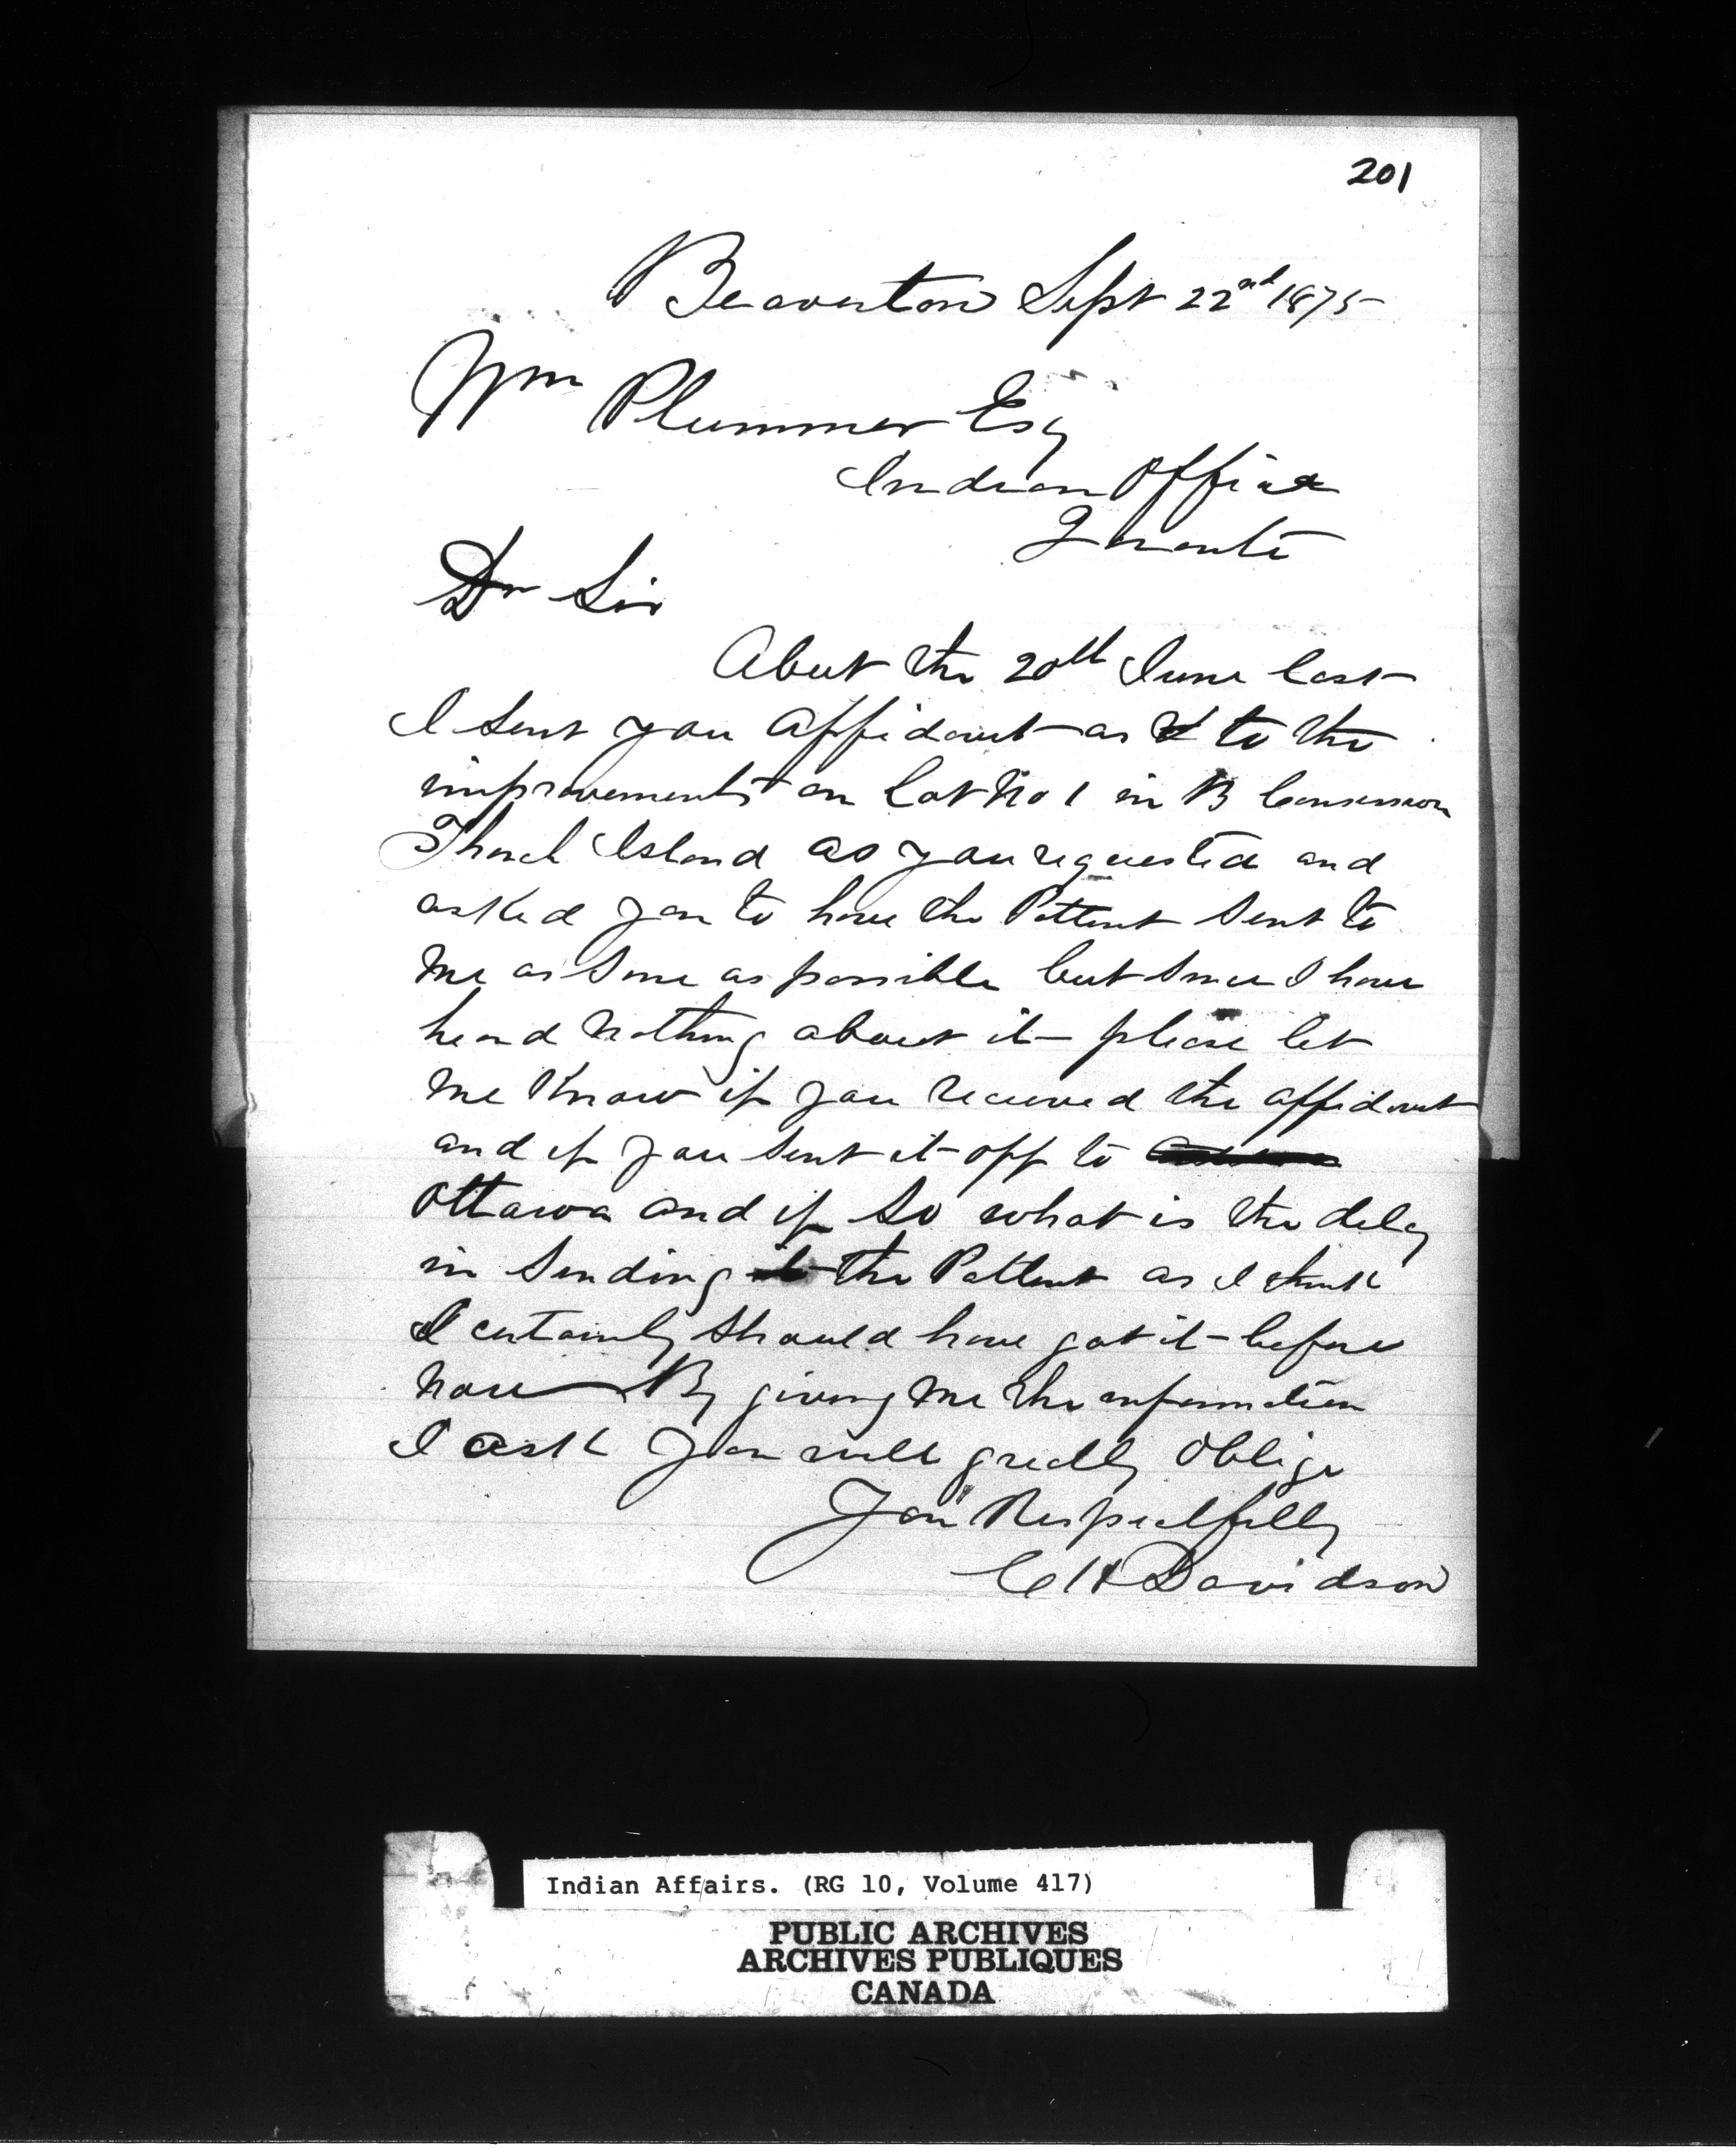 201
Beaverton Sept 22nd 1875
Wm Plummer Esq
Indian Office
Toronto
Dr Sir
About the 20th June last
I sent you affidavit as to the
improvements on Lot No 1 in B Concession
Thorah Island as you requested and
asked you to have the Pattent sent to
me as sone as possible but since I have
heard nothing about it please let
me know if you received the affidavit
and if you sent it off to
Ottawa and if so what is the delay
in sending it the Pattent as I think
I certainly should have got it before
now By giving me the information
I ask you will greatly oblige
Your Respectfully
C H Davidson
Indian Affairs. (RG 10, Volume 417)
PUBLIC ARCHIVES
ARCHIVES PUBLIQUES
CANADA